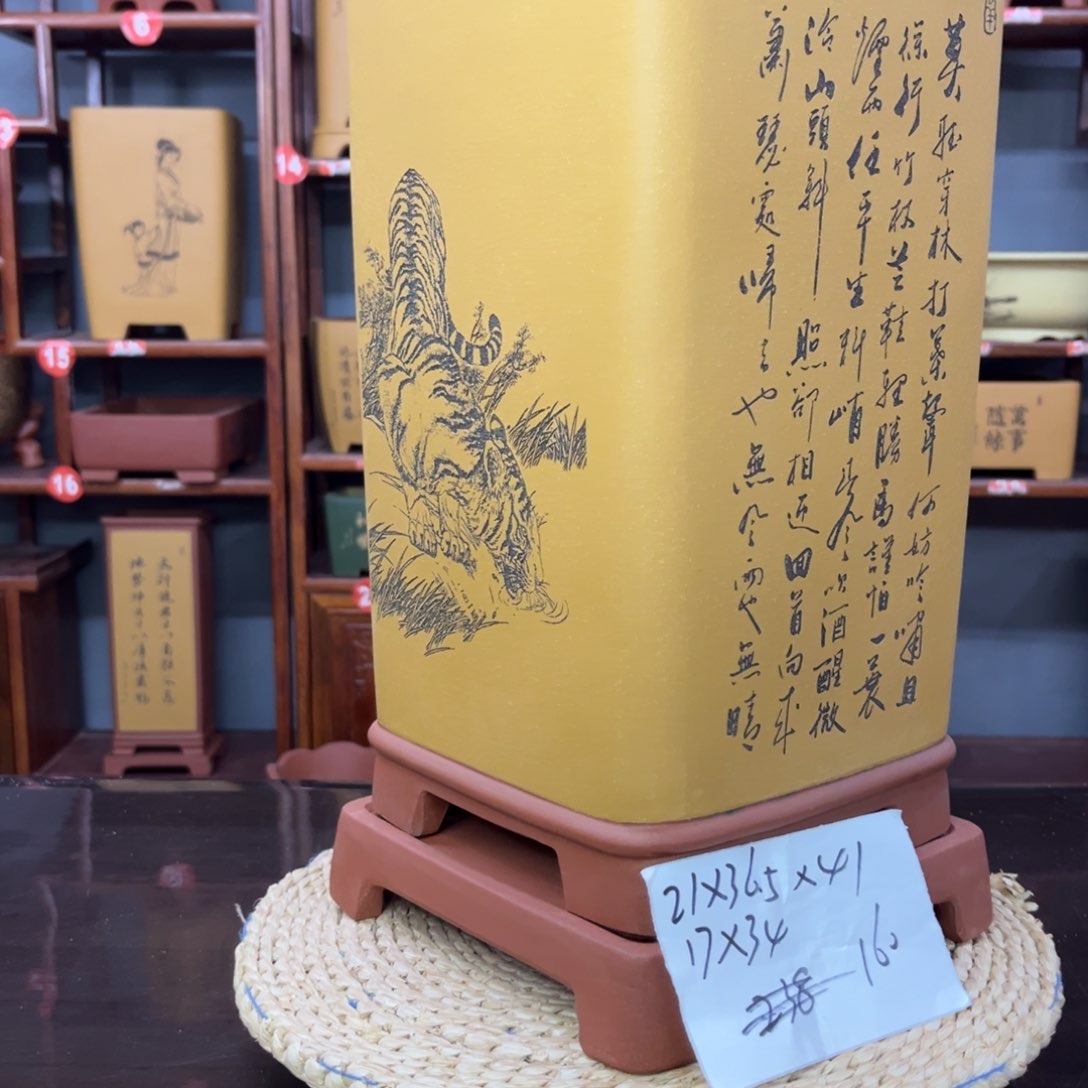 莫聽穿林打葉聲何妨吟嘯且
徐行竹杖芒鞋輕勝馬誰怕一蓑
煙雨任平生料峭春风吹酒醒微
冷山頭斜照卻相迎回首向來
蕭瑟處歸去也無风雨也無晴
21X36.5X41
17X34
160
6
3
14
15
16
萬事
隨緣